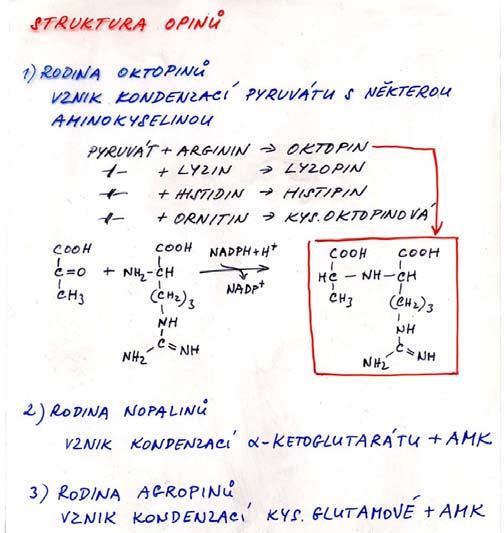 STRUKTURA OPINŮ
1) RODINA OKTOPINŮ
VZNIK KONDENZACÍ PYRUVÁTU S NĚKTEROU
AMINOKYSELINOU
PYRUVÁT + ARGININ → OKTOPIN
-//- + LYZIN → LYZOPIN
-//- + HISTIDIN → HISTIPIN
-//- + ORNITIN → KYS. OKTOPINOVÁ
COOH COOH NADPH+H⁺ COOH COOH
C=O + NH₂-CH NADP⁺ HC - NH - CH
CH₃ (CH₂)₃ CH₃ (CH₂)₃
NH NH
NH₂ C=NH NH₂ C=NH
2) RODINA NOPALINŮ
VZNIK KONDENZACÍ α-KETOGLUTARÁTU + AMK
3) RODINA AGROPINŮ
VZNIK KONDENZACÍ KYS. GLUTAMOVÉ + AMK